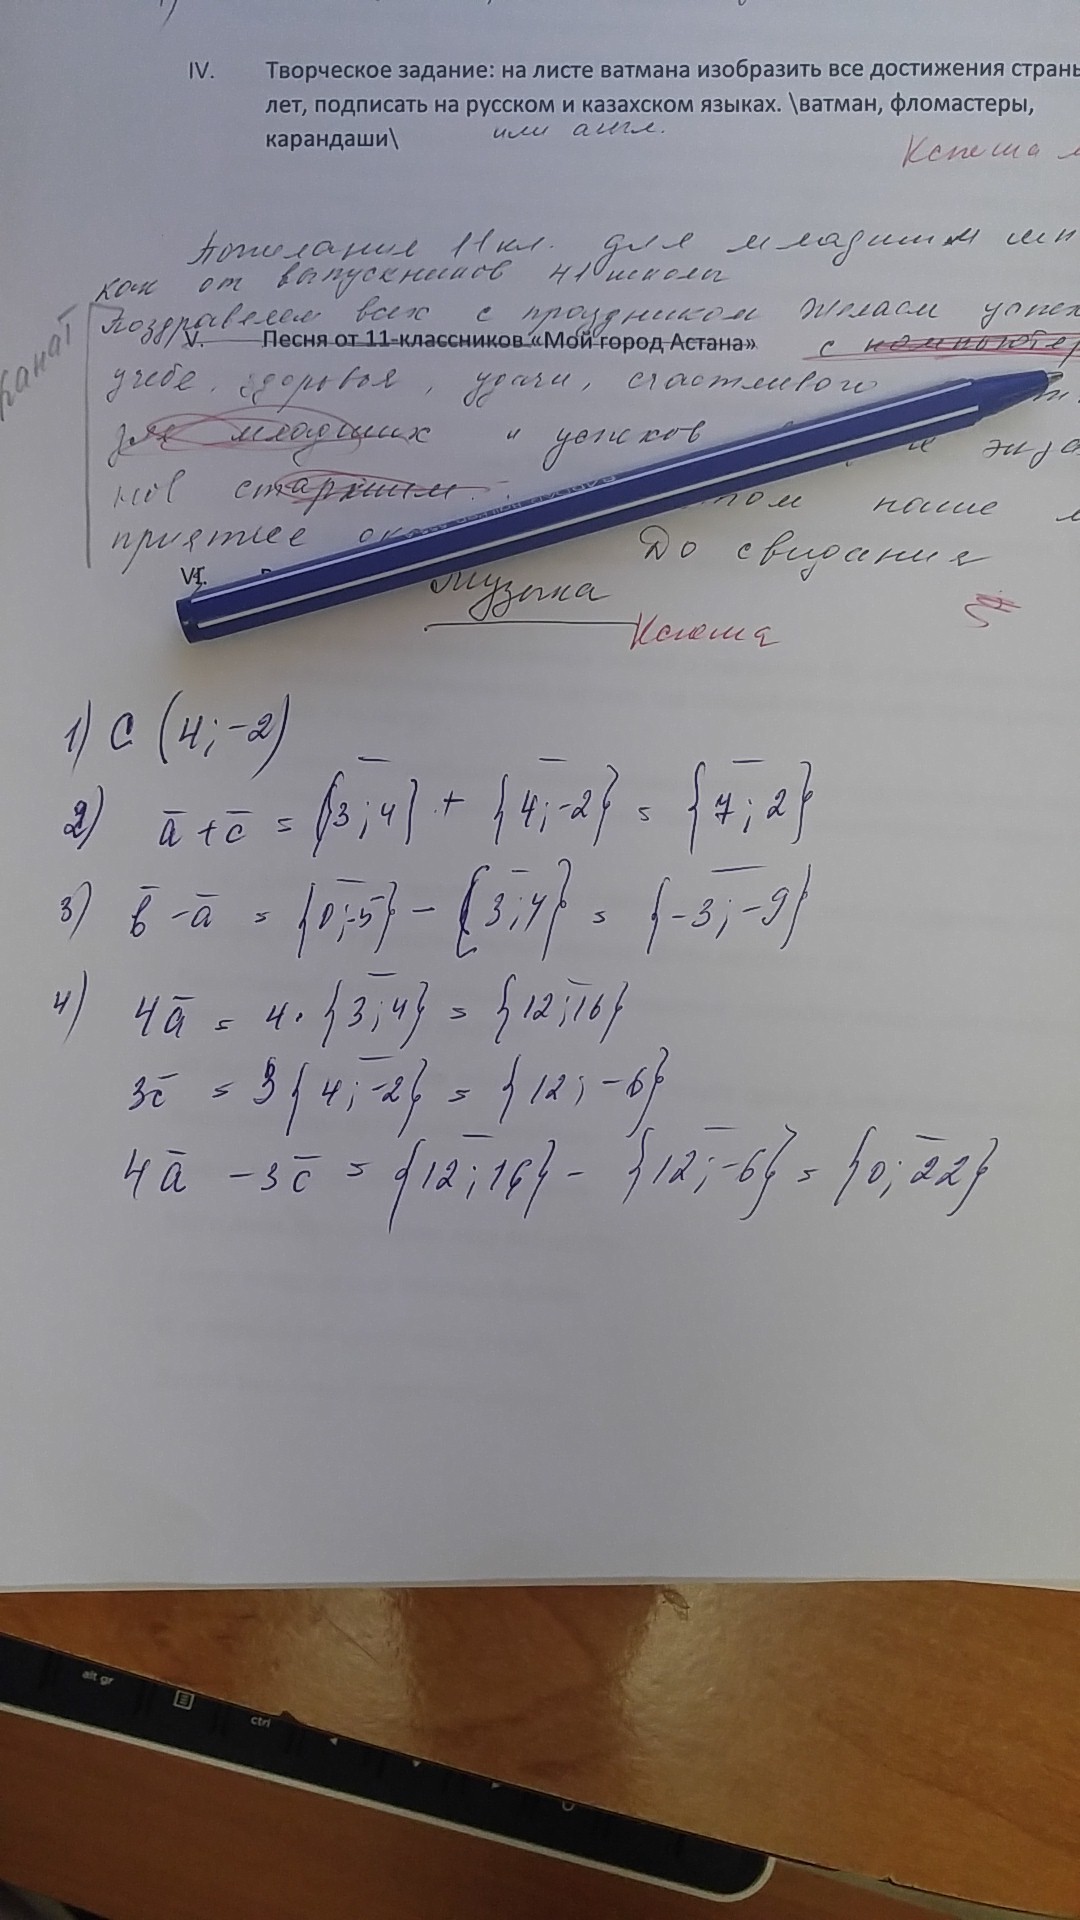 IV. Творческое задание: на листе ватмана изобразить все достижения страны
лет, подписать на русском и казахском языках. \ватман, фломастеры,
карандаши\ или англ.
Ксюша
Пожелания 11 кл. для младших
как от выпускников 41 школы
Канат
Поздравляем всех с праздником Желаем успех
V. Песня от 11-классников «Мой город Астана» с компьютер
учебе, здоровья, удачи, счастливого
для младших и успехов
мов старшим.
приятнее
До свидания
VI.
Музыка
Ксюша
1) C (4; -2)
2) a + c = {3; 4} + {4; -2} = {7; 2}
3) в - a = {0; -5} - {3; 4} = {-3; -9}
4) 4a = 4 · {3; 4} = {12; 16}
3c = 3 {4; -2} = {12; -6}
4a - 3c = {12; 16} - {12; -6} = {0; 22}
alt gr
ctrl